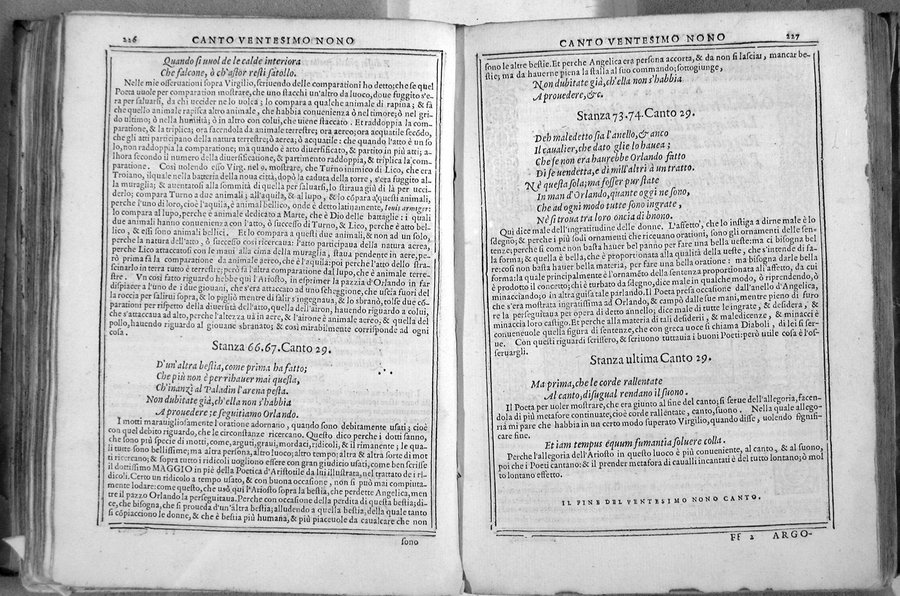 226 CANTO VENTESIMO NONO
Quando si uuol de le calde interiora
Che falcone, ò ch'astor resti satollo.
Nelle mie osseruationi sopra Virgilio, scriuendo delle comparationi ho detto; che se quel
Poeta uuole per comparation mostrare, che uno stacchi un'altro da luoco, doue fuggito s'e-
ra per saluarsi, da chi uccider ne lo uolea; lo compara a qualche animale di rapina; & fà
che quello animale rapisca altro animale, che habbia conuenienza ò nel timore; ò nel gri-
do ultimo; ò nella humiltà; ò in altro con colui, che uiene staccato. Et raddoppia la com-
paratione, & la triplica; ora facendola da animale terrestre; ora aereo; ora acquatile secōdo,
che gli atti participano della natura terrestre; ò aerea; ò acquatile: che quando l'atto è un so
lo, non raddoppia la comparatione; ma quando è atto diuersificato, & partito in più atti; a-
lhora secondo il numero della diuersificatione, & partimento raddoppia, & triplica la com-
paratione. Così uolendo esso Virg. nel 9. mostrare, che Turno inimico di Lico, che era
Troiano, ilquale nella batteria della noua città, dopò la caduta della torre, s'era fuggito al-
la muraglia; & auentatosi alla sommità di quella per saluarsi, lo stiraua giù di là per ucci-
derlo; compara Turno a due animali; all'aquila, & al lupo, & lo cōpara a questi animali,
perche l'uno di loro, cioè l'aquila, è animal bellico, onde è detto latinamente, Iouis armiger:
lo compara al lupo, perche è animale dedicato a Marte, che è Dio delle battaglie: i quali
due animali hanno conuenienza con l'atto, ò successo di Turno, & Lico, perche è atto bel-
lico, & essi sono animali bellici. Et lo compara a questi due animali, & non ad un solo,
perche la natura dell'atto, ò successo così ricercaua: l'atto participaua della natura aerea,
perche Lico attaccatosi con le mani alla cima della muraglia, staua pendente in aere, pe-
rò prima fà la comparatione di animale aereo, che è l'aquila: poi perche l'atto dello stra-
scinarlo in terra tutto è terrestre; però fà l'altra comparatione dal lupo, che è animale terre-
stre. Vn così fatto riguardo hebbe quì l'Ariosto, in esprimer la pazzia d'Orlando in far
dispiacer a l'uno de i due giouani, che s'era attaccato ad uno scheggione, che usciua fuori del
la roccia per salirui sopra, & lo pigliò mentre di salir s'ingegnaua, & lo sbranò, tolse due cō-
parationi per rispetto della diuersità dell'atto, quella dell'airon, hauendo riguardo a colui,
che s'attaccaua ad alto, perche l'altezza uà in aere, & l'airone è animale aereo, & quella del
pollo, hauendo riguardo al giouane sbranato; & così mirabilmente corrisponde ad ogni
cosa.
Stanza 66.67. Canto 29.
D'un'altra bestia, come prima ha fatto;
Che più non è per rihauer mai questa,
Ch'inanzi al Paladin l'arena pesta.
Non dubitate già, ch'ella non s'habbia
A prouedere: e seguitiamo Orlando.
I motti marauigliosamente l'oratione adornano, quando sono debitamente usati; cioè
con quel debito riguardo, che le circostanze ricercano. Questo dico perche i dotti sanno,
che sono più specie di motti, come, arguti, graui, mordaci, ridicoli, & il rimanente; le qua-
li tutte sono bellissime; ma altra persona, altro luoco; altro tempo; altra & altra sorte di mot
ti ricercano; & sopra tutto i ridicoli uogliono essere con gran giudicio usati, come ben scrisse
il dottissimo MAGGIO in piè della Poetica d'Aristotile da lui illustrata, nel trattato de i ri-
dicoli. Certo un ridicolo a tempo usato, & con buona occasione, non si può mai compiuta-
mente lodare: come questo, che usò quì l'Ariosto sopra la bestia, che perdette Angelica, men
tre il pazzo Orlando la perseguitaua. Perche con occasione della perdita di questa bestia; di-
ce, che bisogna, che si proueda d'un'altra bestia; alludendo a quella bestia, della quale tanto
si cōpiacciono le donne, & che è bestia più humana, & più piaceuole da caualcare che non
sono
CANTO VENTESIMO NONO 227
sono le altre bestie. Et perche Angelica era persona accorta, & da non si lasciar, mancar be-
stie; ma da hauerne piena la stalla al suo commando; sottogiunge,
Non dubitate già, ch'ella non s'habbia
A prouedere, &c.
Stanza 73.74. Canto 29.
Deh maledetto sia l'anello, & anco
Il caualier, che dato glie lo hauea;
Che se non era haurebbe Orlando fatto
Di se uendetta, e di mill'altri à un tratto.
Nè questa sola; ma fosser pur state
In man d'Orlando, quante oggi ne sono,
Che ad ogni modo tutte sono ingrate,
Nè si troua tra loro oncia di buono.
Qui dice male dell'ingratitudine delle donne. L'affetto, che lo instiga a dirne male è lo
sdegno; & perche i più sodi ornamenti che riceuano orationi, sono gli ornamenti delle sen-
tenze; perche si come non basta hauer bel panno per fare una bella ueste: ma ci bisogna bel
la forma; & quella è bella, che è proportionata alla qualità della ueste, che s'intende di fa-
re: così non basta hauer bella materia, per fare una bella oratione: ma bisogna darle bella
forma: la quale principalmente è l'ornamēto della sentenza proportionata all'affetto, da cui
è prodotto il concetto; chi è turbato da sdegno, dice male in qualche modo, ò riprendendo, ò
minacciando, o in altra guisa tale parlando. Il Poeta prese occasione dall'anello d'Angelica,
che s'era mostrata ingratissima ad Orlando, & campò dalle sue mani, mentre pieno di furo
re la perseguitaua per opera di detto annello; dice male di tutte le ingrate, & desidera, &
minaccia loro castigo. Et perche alla materia di tali desiderii, & maledicenze, & minacci è
conueneuole quella figura di sentenze, che con greca uoce si chiama Diaboli, di lei si ser-
ue. Con questi riguardi scrissero, & scriuono tuttauia i buoni Poeti: però utile cosa è l'os-
seruargli.
Stanza ultima Canto 29.
Ma prima, che le corde rallentate
Al canto, disugual rendano il suono.
Il Poeta per uoler mostrare, che era giunto al fine del canto; si serue dell'allegoria, facen-
dola di più metafore continuate; cioè corde rallentate, canto, suono. Nella quale allego-
ria mi pare che habbia in un certo modo superato Virgilio, quando disse, uolendo signifi-
care fine.
Et iam tempus equum fumantia soluere colla.
Perche l'allegoria dell'Ariosto in questo luoco è più conueniente, al canto, & al suono,
poi che i Poeti cantano; & il prender metafora di caualli incantati è del tutto lontano; ò mol
to lontano essetto.
IL FINE DEL VENTESIMO NONO CANTO.
FF 2 ARGO-